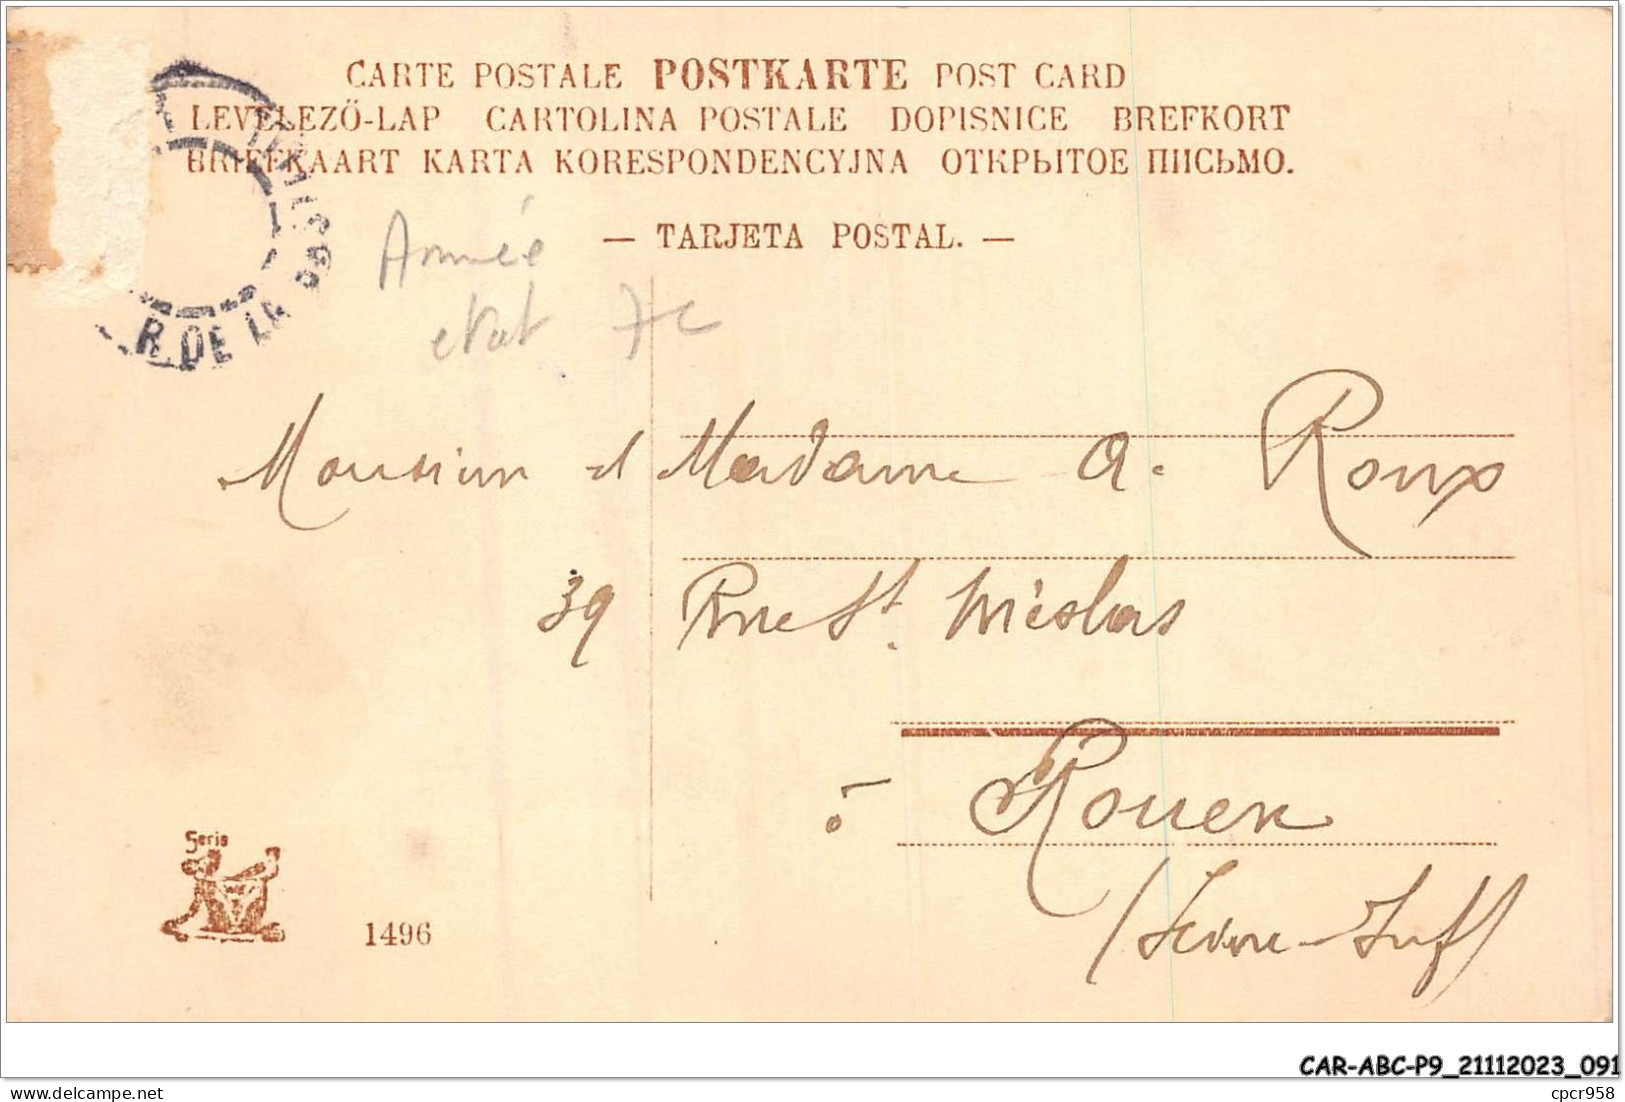 CARTE POSTALE POSTKARTE POST CARD
LEVELEZÖ-LAP CARTOLINA POSTALE DOPISNICE BREFKORT
BRIEFKAART KARTA KORESPONDENCYJNA ОТКРЫТОЕ ПИСЬМО.
— TARJETA POSTAL. —
R. DE LA
Année
etat 7c
Monsieur et Madame A. Roux
39 Rue St. Nicolas
à Rouen
(Seine-Inf)
Serie
1496
CAR-ABC-P9_21112023_091
cpcr958